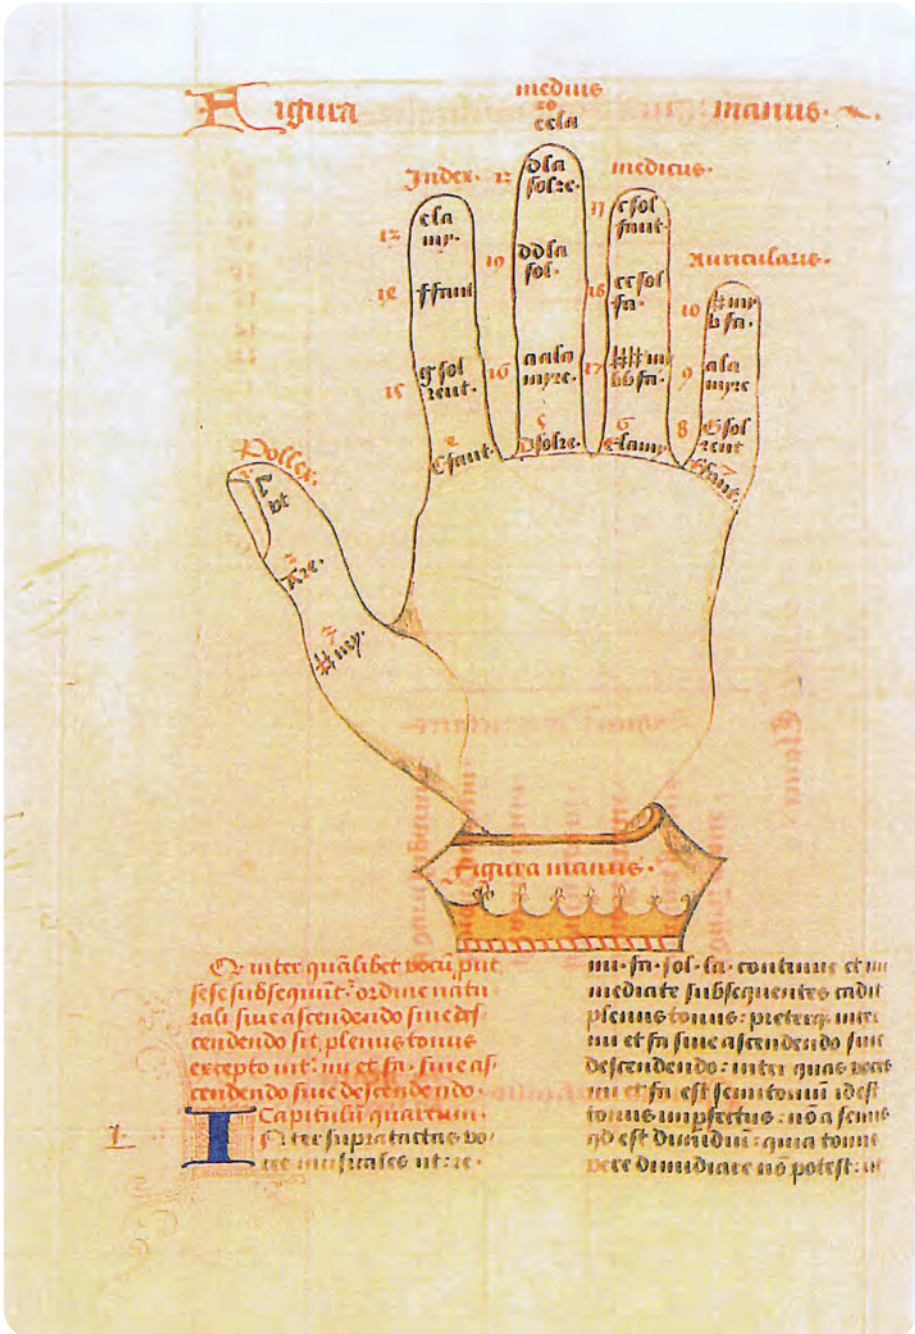 Figura manus.
medius
20
eela
Index. 12 dla
solre.
medicus.
11 csol
faut.
Auricularis.
ela
my.
19 ddla
sol.
18 ccsol
fa.
10 ♯my
b fa.
ffaut
15 gsol
reut.
16 aala
myre.
17 ♯♯my
bbfa.
9 ala
myre
8 Gsol
reut
Cfaut.
5
Dsolre.
6
Elamy.
7
Ffaut.
Pollex.
Γ
ut
Are.
3
♯my.
Figura manus.
inter quãlibet vocũ, put
sese subsequũt: ordine natu
rali siue ascendendo siue des
cendendo sit plenus tonus
excepto int: mi et fa. siue as
cendendo siue descendendo.
Capitulũ quartum.
Inter supratactas vo
ces musicales ut: re.
mi. fa. sol. la. continue et im
mediate subsequentes cadit
plenus tonus: preterq inter
mi et fa siue ascendendo siue
descendendo: inter quas voces
mi et fa est semitoniũ idest
tonus impfectus: nõ a semis
qd est dimidiũ: quia tonus
vere dimidiare nõ potest: ut